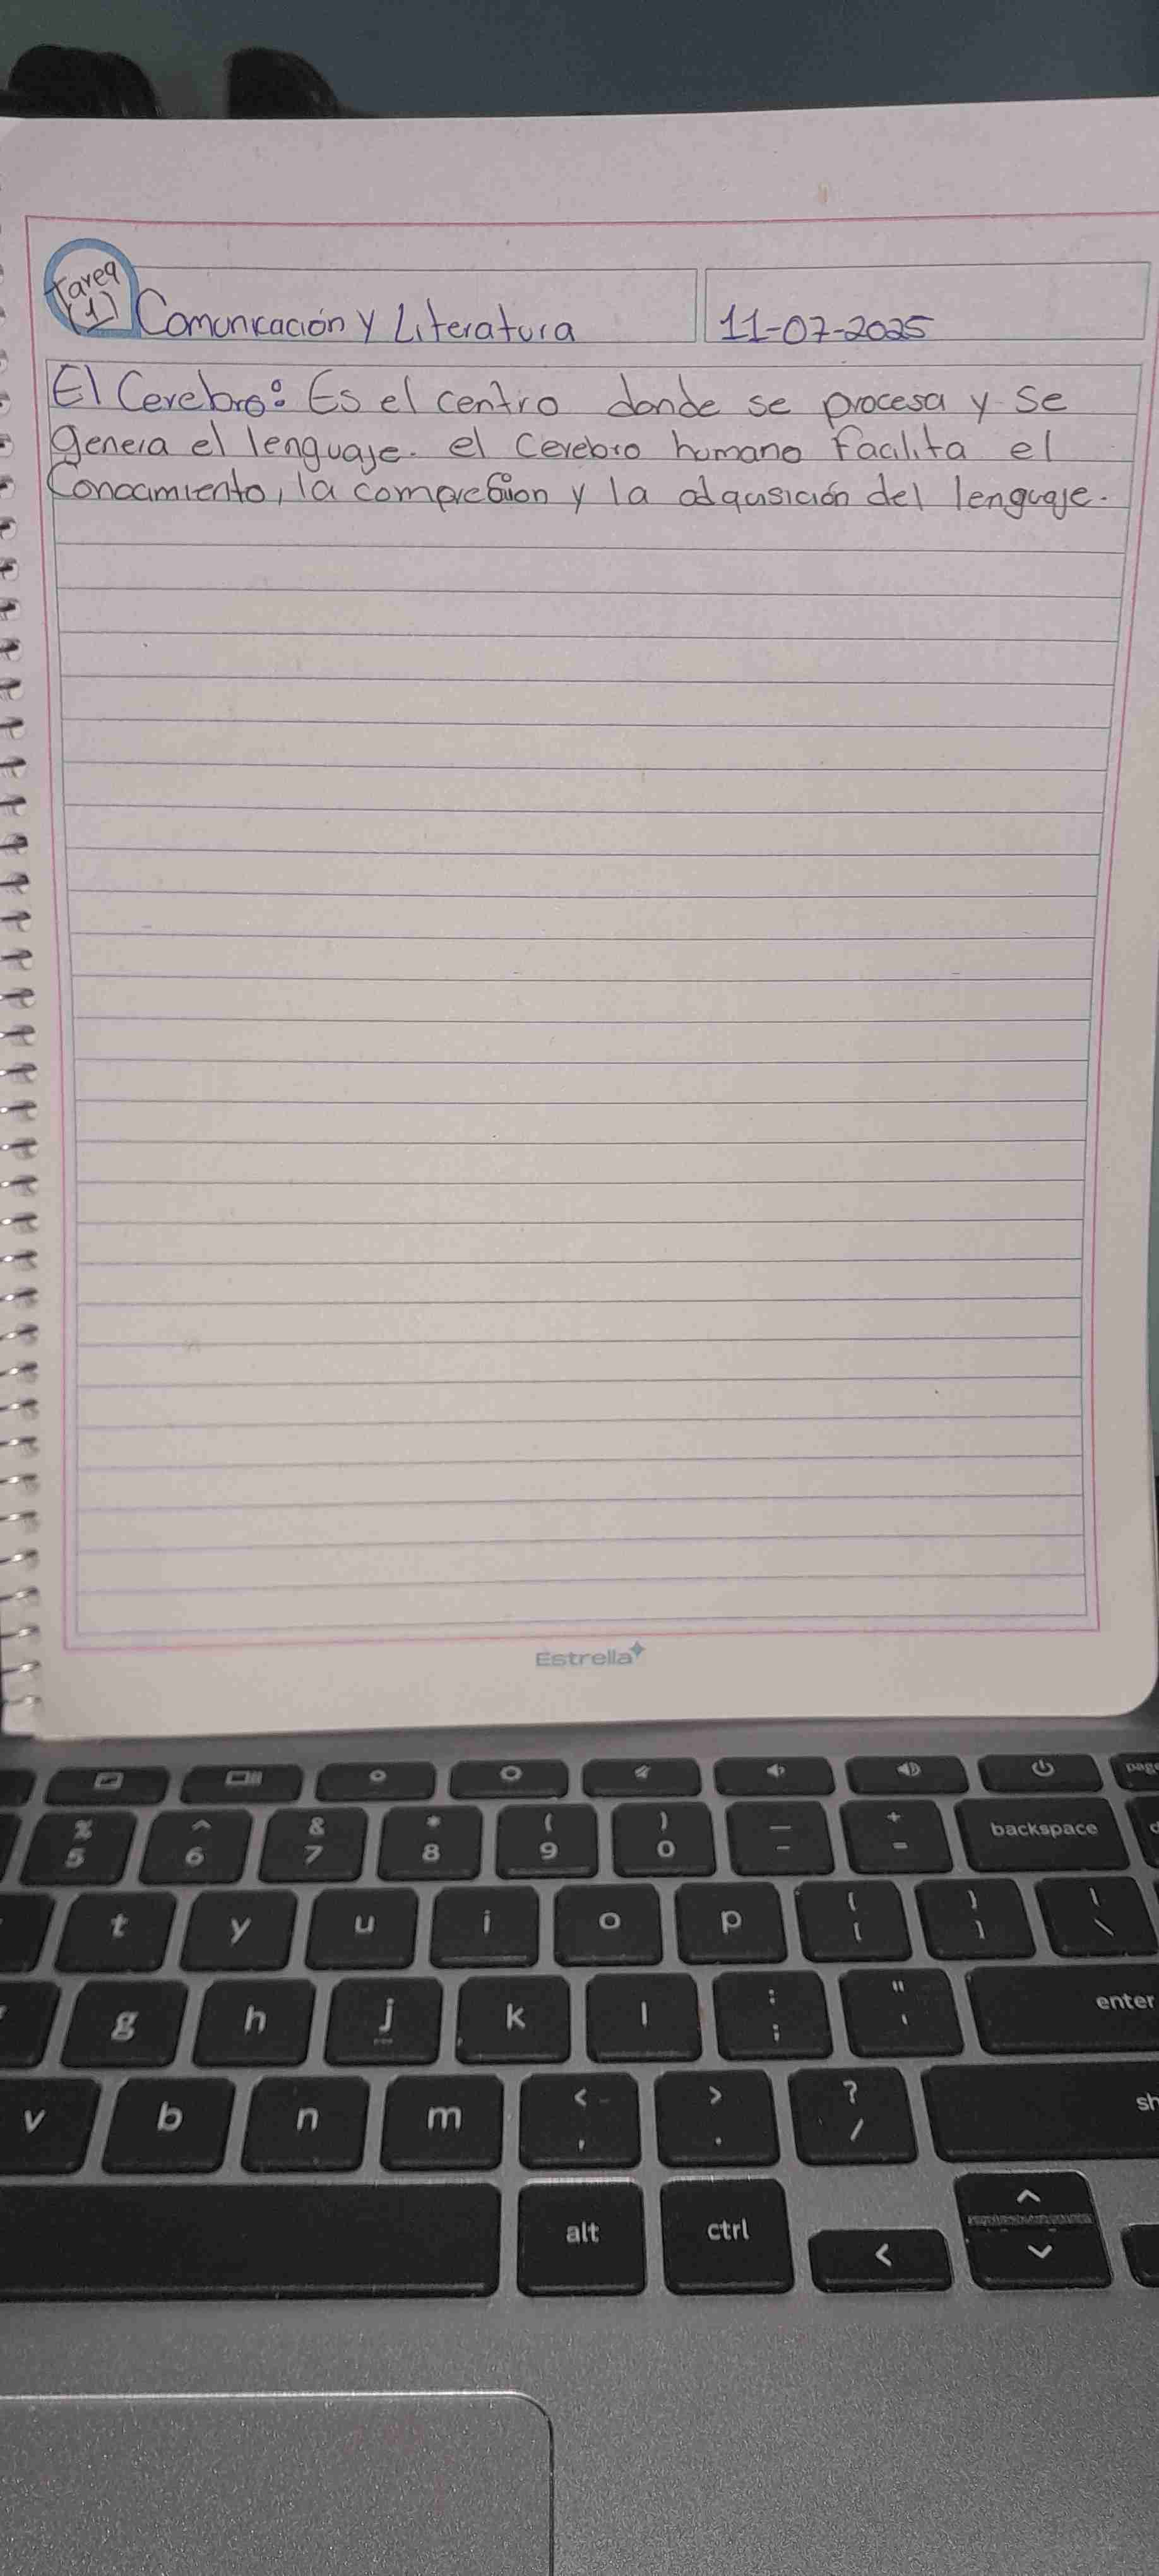 Tarea
(1)
Comunicación y Literatura
11-07-2025
El Cerebro: Es el centro donde se procesa y se
genera el lenguaje. el cerebro humano facilita el
Conocimiento, la compresion y la adqusición del lenguaje.
Estrella
page
% 5 ^ 6 & 7 * 8 ( 9 ) 0 — - + = backspace
t y u i o p { [ } ] | \
g h j k l : ; " ' enter
v b n m < , > . ? / sh
alt ctrl